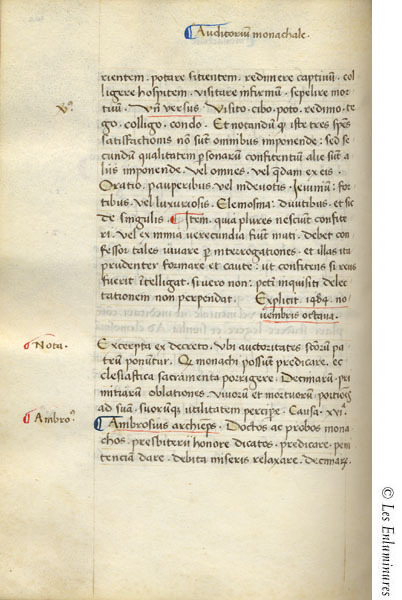 Auditoriũ monachale.
rientem. potare sitientem. redimere captivũ. col
ligere hospitem. visitare infirmũ. sepelire mor
tuũ. Vñ versus. Visito. cibo. poto. redimo. te
go. colligo. condo. Et notandũ q̃ iste tres spẽs
satisfactionis nõ sũt omnibus imponende: sed se
cundũ qualitatem ꝑsonarũ confitentiũ alie sũt a
liis imponende. Vel omnes. vel q̃dam ex eis.
Oratio. pauperibus. vel indevotis. Ieiuniũ: for
tibus. vel luxuriosis. Elemosina: divitibus. et sic
de singulis. ¶ Item. quia plures nesciunt confite
ri. vel ex nimia verecundia fiunt muti. debet con
fessor tales iuvare ꝑ interrogationes. et illas ita
prudenter formare et caute: ut confitens si reus
fuerit ĩtelligat. si vero non: peccati inquisiti delec
tationem non perpendat. Explicit 1484 no
vembris octava.
v9.
¶ Nota.
Excerpta ex decreto. Ubi auctoritates sctõrũ pa
trũ ponũtur. Q monachi possũt predicare. ec
clesiastica sacramenta porrigere. Decimarũ. pri
mitiarũ oblationes. Vivorũ et mortuorũ. portiões
ad suã. suorũq̃ utilitatem percipe. Causa. xvi.
¶ Ambro9.
¶ Ambrosius archiep̃s. Doctos ac probos mona
chos. presbiterii honore dicatos. predicare. peni
tenciã dare. debita miseris relaxare. decimarꝝ.
© Les Enluminures